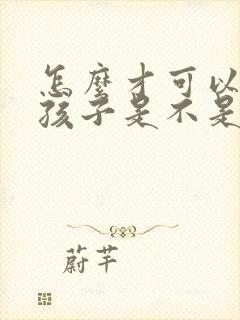 怎麼才可以
孩子是不是
蔚芊